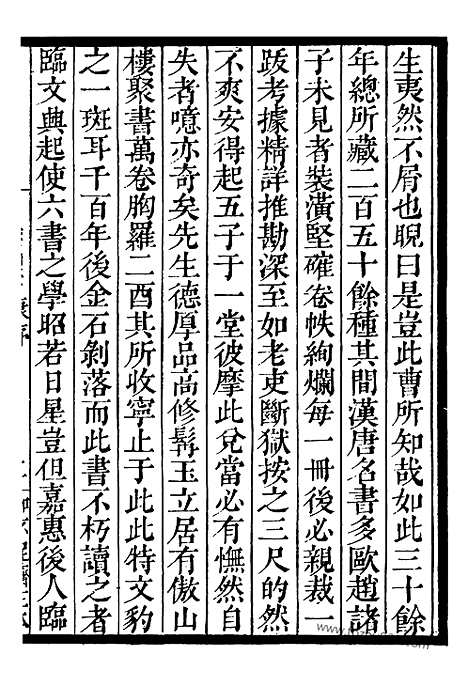 生夷然不屑也睨曰是豈此曹所知哉如此三十餘
年總所藏二百五十餘種其間漢唐名書多歐趙諸
子未見者裝潢堅確卷帙絢爛每一冊後必親裁一
跋考據精詳推勘深至如老吏斷獄按之三尺的然
不爽安得起五子于一堂彼摩此兌當必有憮然自
失者噫亦奇矣先生德厚品高修髯玉立居有傲山
樓聚書萬卷胸羅二酉其所收寧止于此此特文豹
之一斑耳千百年後金石剝落而此書不朽讀之者
臨文興起使六書之學昭若日星豈但嘉惠後人臨